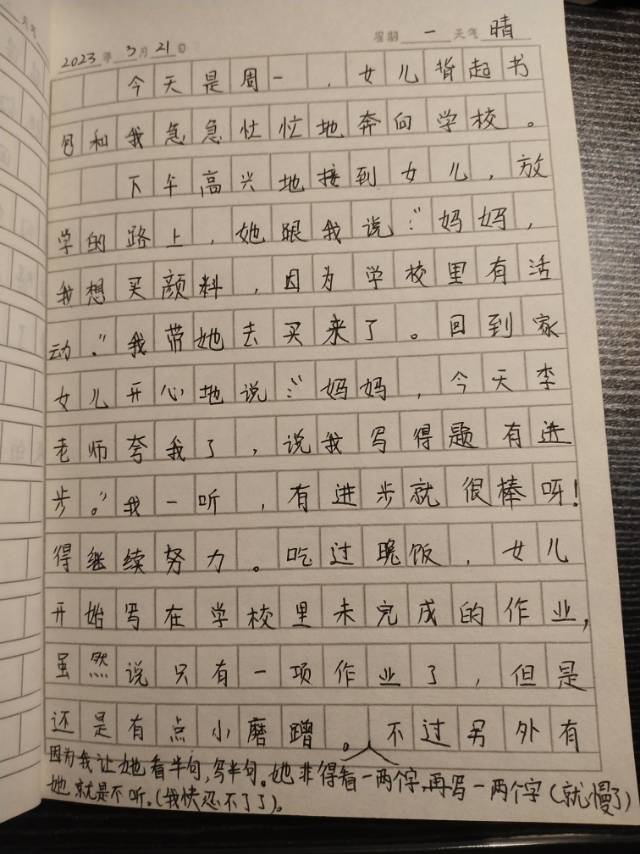 2023年3月21日 星期一 天气晴
今天是周一,女儿背起书
包和我急急忙忙地奔向学校。
下午高兴地接到女儿,放
学的路上,她跟我说:"妈妈,
我想买颜料,因为学校里有活
动。"我带她去买来了。回到家
女儿开心地说:"妈妈,今天李
老师夸我了,说我写得题有进
步。"我一听,有进步就很棒呀!
得继续努力。吃过晚饭,女儿
开始写在学校里未完成的作业,
虽然说只有一项作业了,但是
还是有点小磨蹭。不过另外有
因为我让她看半句,写半句。她非得看一两个字,再写一两个字(就慢了)
她就是不听。(我快忍不了了)。